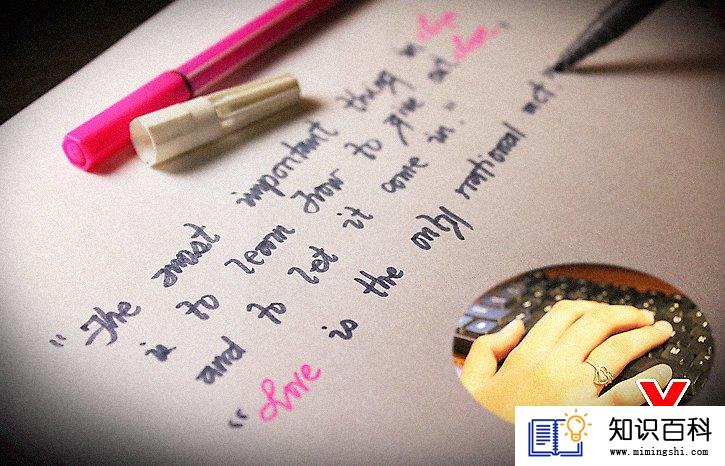 "The most important thing in life
is to learn how to give out love,
and to let it come in."
"Love is the only rational act."
知识百科
www.mimingshi.com